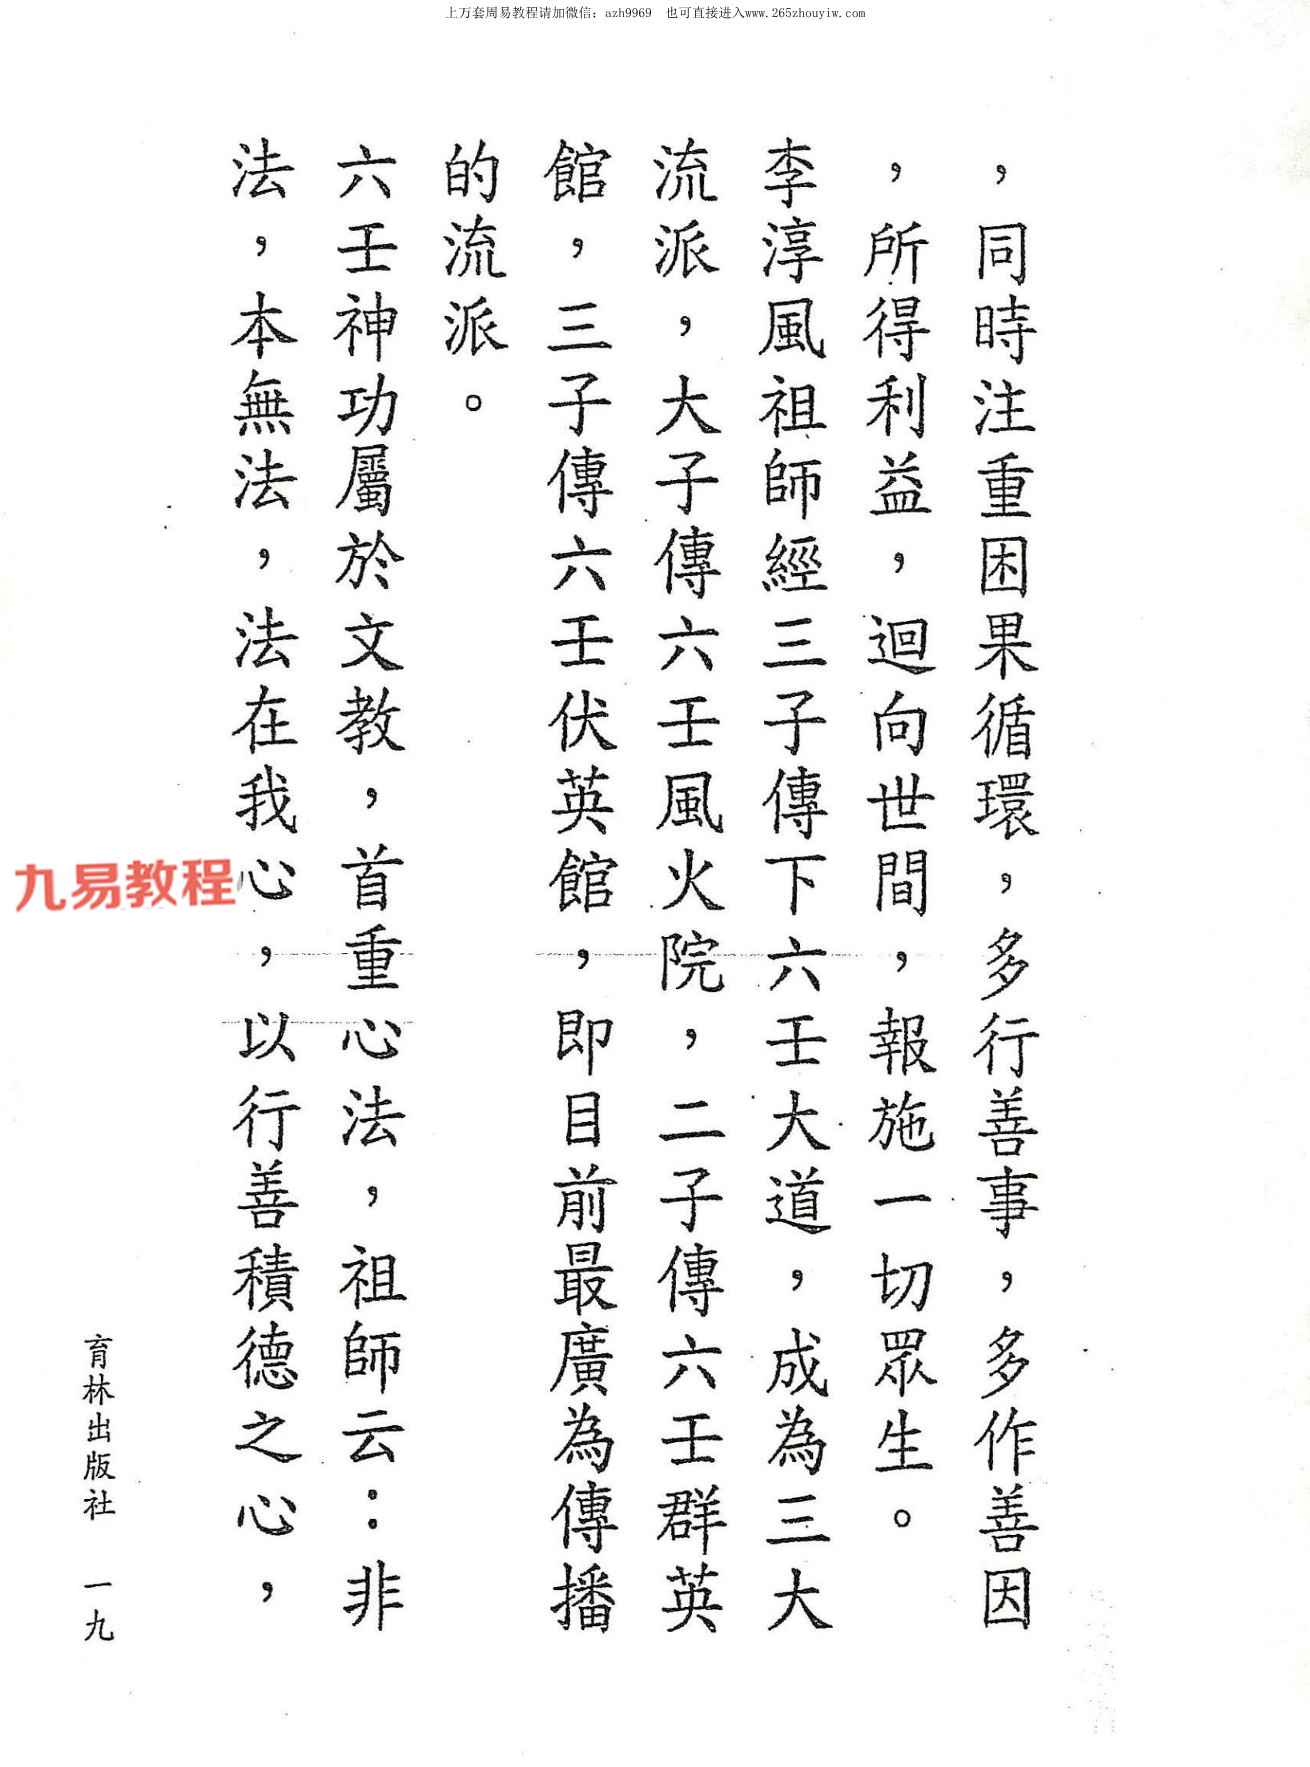 上万套周易教程请加微信：azh9969　也可直接进入www.265zhouyiw.com
，同時注重困果循環，多行善事，多作善因
，所得利益，迴向世間，報施一切眾生。
李淳風祖師經三子傳下六壬大道，成為三大
流派，大子傳六壬風火院，二子傳六壬群英
館，三子傳六壬伏英館，即目前最廣為傳播
的流派。
六壬神功屬於文教，首重心法，祖師云：非
法，本無法，法在我心，以行善積德之心，
九易教程
育林出版社　一九